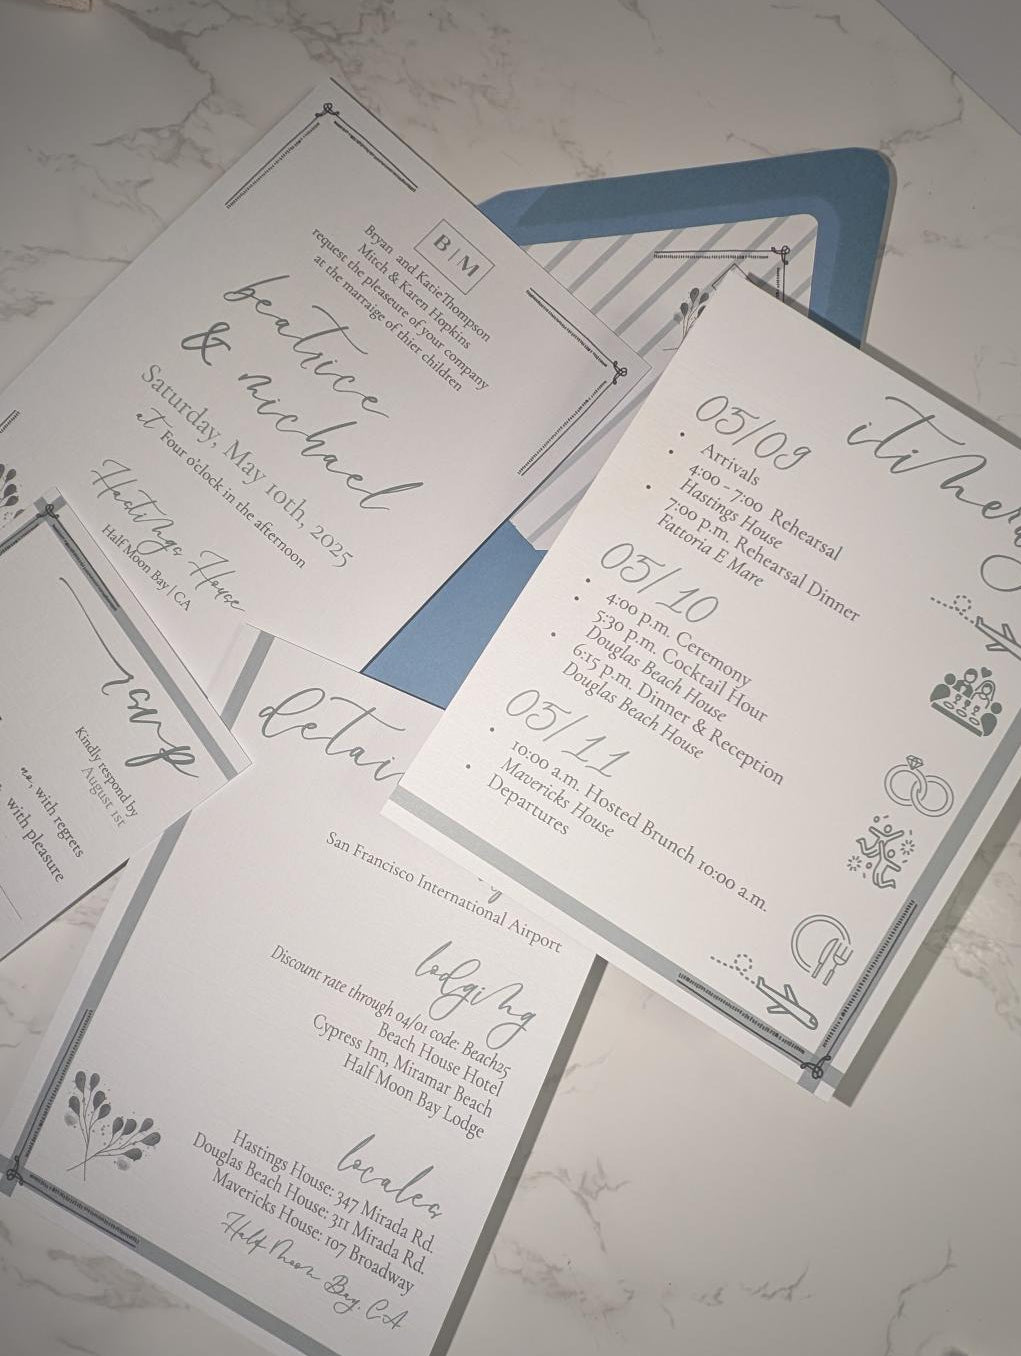 B|M
Bryan and Katie Thompson
Mitch & Karen Hopkins
request the pleaseure of your company
at the marraige of thier children
beatrice
& michael
Saturday, May 10th, 2025
at Four o'clock in the afternoon
Hastings House
Half Moon Bay | CA
rsvp
Kindly respond by
August 1st
no, with regrets
with pleasure
detai
San Francisco International Airport
lodging
Discount rate through 04/01 code: Beach25
Beach House Hotel
Cypress Inn, Miramar Beach
Half Moon Bay Lodge
locales
Hastings House: 347 Mirada Rd.
Douglas Beach House: 311 Mirada Rd.
Mavericks House: 107 Broadway
Half Moon Bay, CA
itinera
05/09
• Arrivals
• 4:00 - 7:00 Rehearsal
Hastings House
• 7:00 p.m. Rehearsal Dinner
Fattoria E Mare
05/10
• 4:00 p.m. Ceremony
• 5:30 p.m. Cocktail Hour
Douglas Beach House
• 6:15 p.m. Dinner & Reception
Douglas Beach House
05/11
• 10:00 a.m. Hosted Brunch 10:00 a.m.
Mavericks House
• Departures